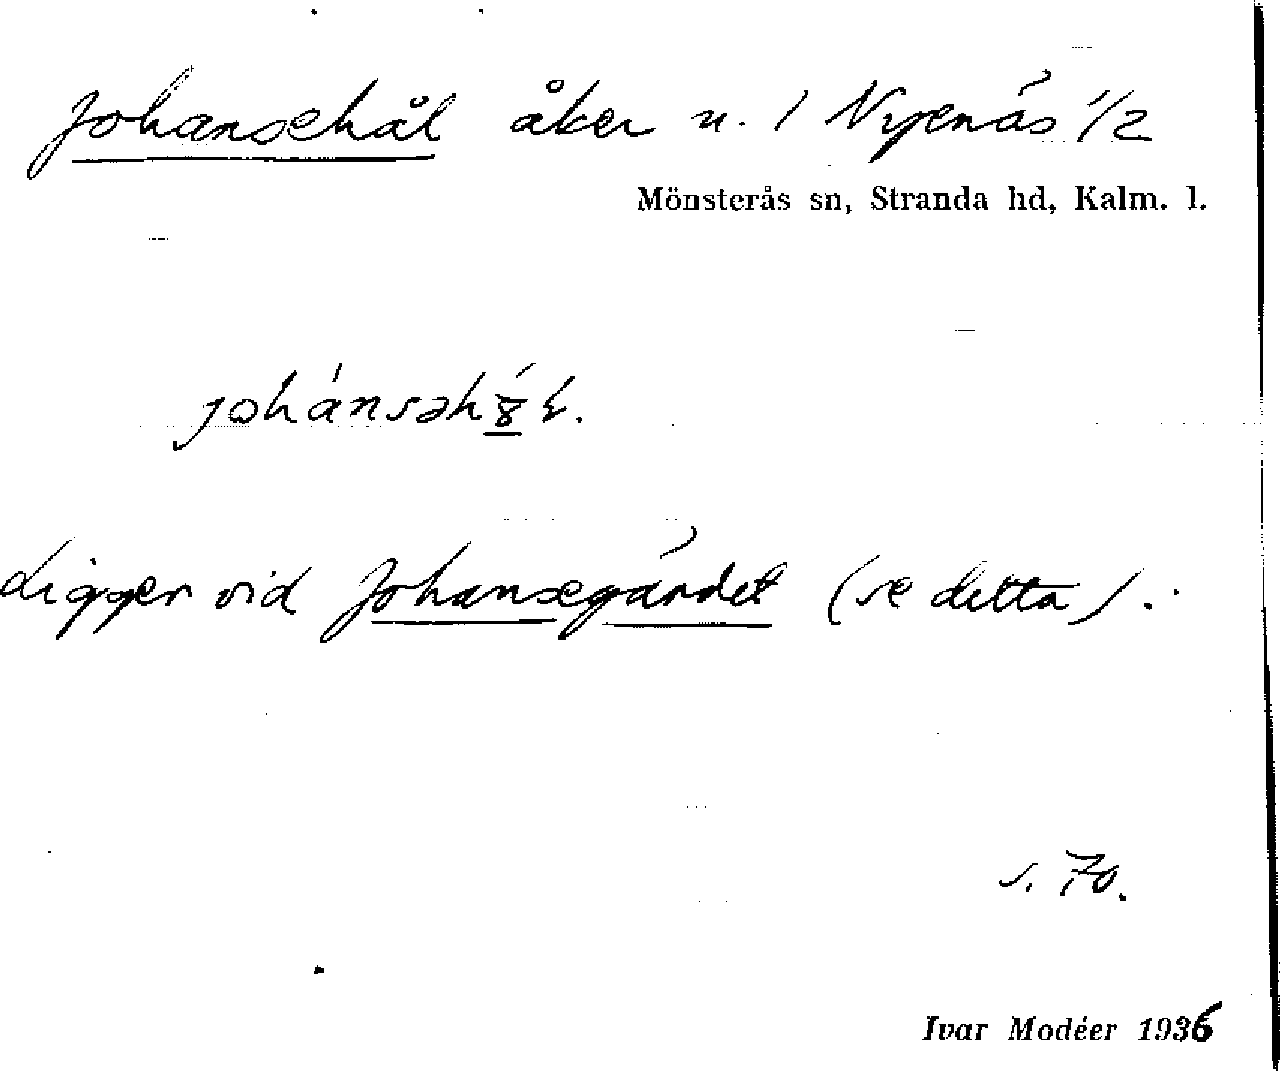 Johansehål åker u. / Nyenäs 1/2
Mönsterås sn, Stranda hd, Kalm. l.
Ligger vid Johansegärdet (se detta).
s. 70.
Ivar Modéer 1936